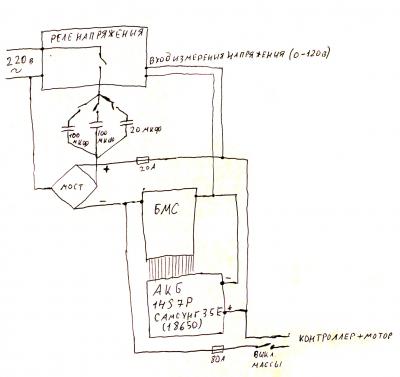 РЕЛЕ НАПРЯЖЕНИЯ
220 в
~
ВХОД ИЗМЕРЕНИЯ НАПРЯЖЕНИЯ (0-120в)
100 мкф
100 мкф
20 мкф
+
20А
МОСТ
-
БМС
-
АКБ
14S7P
+
САМСУНГ 35Е
(18650)
КОНТРОЛЛЕР+МОТОР
80А
ВЫКЛ.
МАССЫ